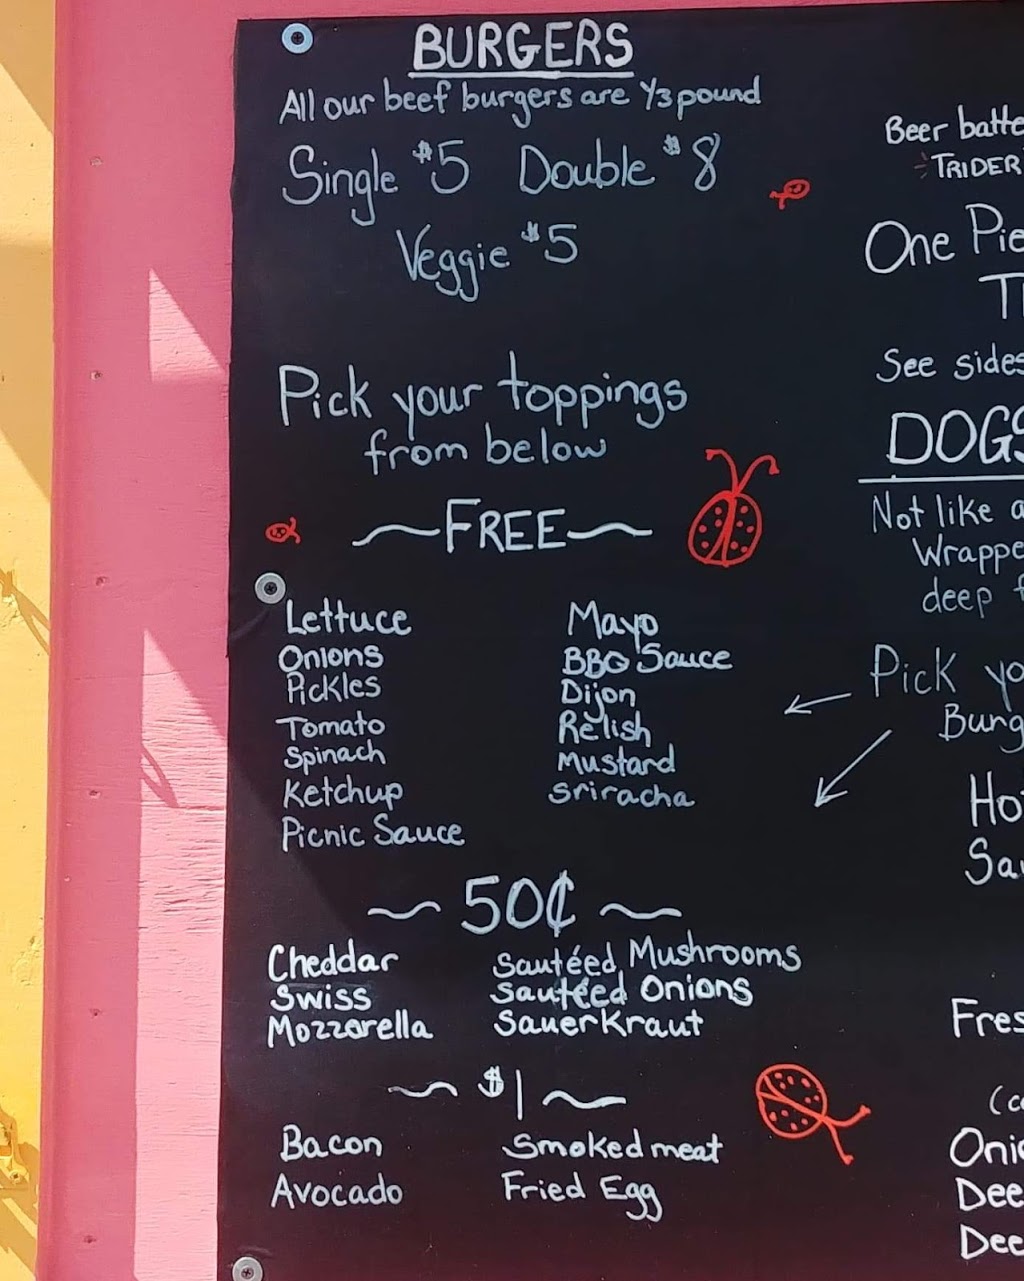 BURGERS
All our beef burgers are 1/3 pound
Single $5 Double $8
Veggie $5
Pick your toppings
from below
~FREE~
Lettuce
Onions
Pickles
Tomato
Spinach
Ketchup
Picnic Sauce
Mayo
BBQ Sauce
Dijon
Relish
Mustard
Sriracha
~ 50¢ ~
Cheddar
Swiss
Mozzorella
Sautéed Mushrooms
Sautéed Onions
SauerKraut
~ $1 ~
Bacon
Avocado
Smoked meat
Fried Egg
Beer batte
TRIDER
One Pie
See sides
DOGS
Not like a
Wrappe
deep f
Pick yo
Burg
Ho
Sau
Fres
Onio
Dee
Dee